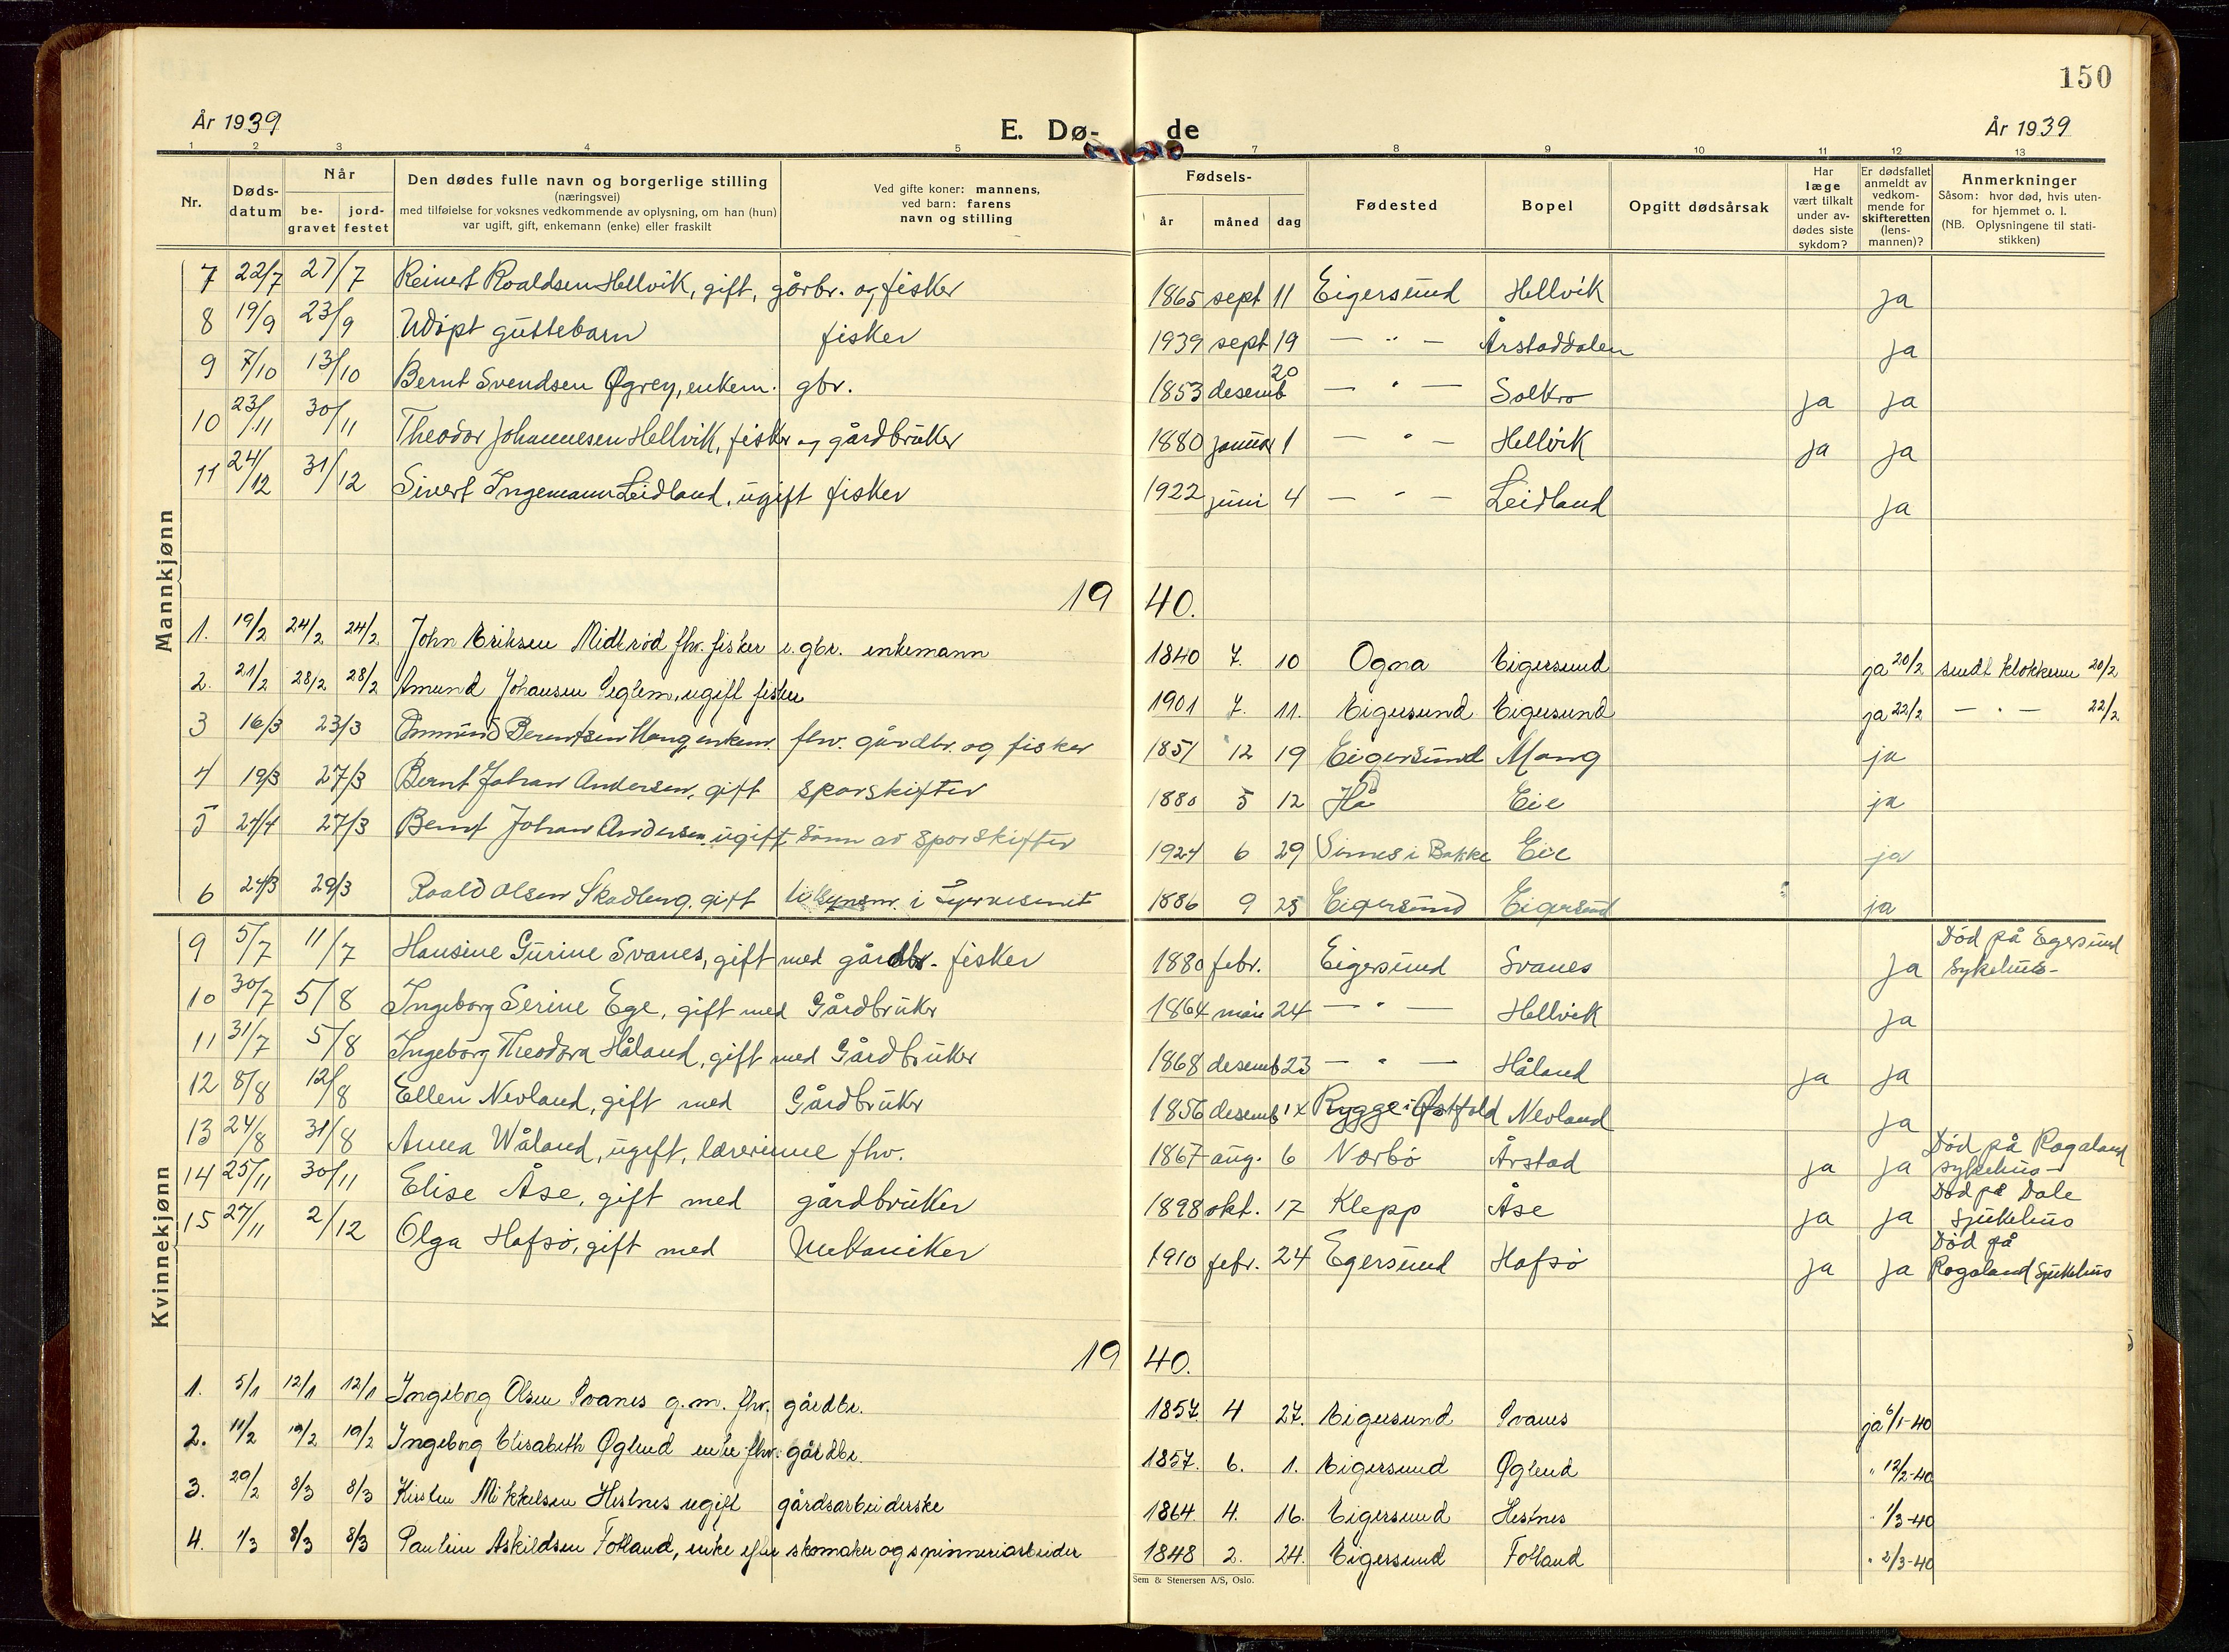 150
År 1939
E. Dø- de
År 1939
1 2 3 4 5 7 8 9 10 11 12 13
Nr.
Døds-
datum
Når
be-
gravet
jord-
festet
Den dødes fulle navn og borgerlige stilling
(næringsvei)
med tilføielse for voksnes vedkommende av oplysning, om han (hun)
var ugift, gift, enkemann (enke) eller fraskilt
Ved gifte koner: mannens,
ved barn: farens
navn og stilling
Fødsels-
år måned dag
Fødested
Bopel
Opgitt dødsårsak
Har
læge
vært tilkalt
under av-
dødes siste
sykdom?
Er dødsfallet
anmeldt av
vedkom-
mende for
skifteretten
(lens-
mannen)?
Anmerkninger
Såsom: hvor død, hvis uten-
for hjemmet o. l.
(NB. Oplysningene til stati-
stikken)
Mannkjønn
7 22/7 27/7 Reinert Roaldsen Hellvik, gift, gårbr. og fisker 1865 sept 11 Eigersund Hellvik ja
8 19/9 23/9 Udøpt guttebarn fisker 1939 sept 19 — " — Årstaddalen ja
9 7/10 13/10 Bernt Svendsen Øgrey, enkem. gbr. 1853 desemb 20 — " — Solkro ja ja
10 23/11 30/11 Theodor Johannesen Hellvik, fisker og gårdbruker 1880 januar 1 — " — Hellvik ja ja
11 24/12 31/12 Sivert Ingemann Leidland, ugift fisker 1922 juni 4 — " — Leidland ja
19 40.
1. 19/2 24/2 24/2 John Eriksen Midbrød fhv. fisker o. gbr. enkemann 1840 7. 10 Ogna Eigersund ja 20/2 sendt klokkeren 20/2
2. 21/2 28/2 28/2 Amund Johansen Seglem, ugift fisker 1901 7. 11. Eigersund Eigersund ja 22/2 — " — 22/2
3 16/3 23/3 Ommund Berentsen Mong enkem. fhv. gårdbr. og fisker 1851 12 19 Eigersund Mong ja
4 19/3 27/3 Bernt Johan Andersen, gift sporskifter 1880 5 12 Hå Eie ja
5 24/4 27/3 Bernt Johan Andersen ugift sønn av sporskifter 1924 6 29 Sirnes i Bakke Eie ja
6 24/3 29/3 Roald Olsen Skadberg, gift tilsynsm. i 1886 9 25 Eigersund Eigersund ja
Kvinnekjønn
9 5/7 11/7 Hansine Gurine Svanes, gift med gårdbr. fisker 1880 febr. Eigersund Svanes ja Død på Egersund
sykehus-
10 30/7 5/8 Ingeborg Serine Ege, gift med Gårdbruker 1864 mai 24 — " — Hellvik ja
11 31/7 5/8 Ingeborg Theodora Håland, gift med Gårdbruker 1868 desemb 23 — " — Håland ja ja
12 8/8 12/8 Ellen Nevland, gift med Gårdbruker 1856 desemb 1X Rygge i Østfold Nevland ja
13 24/8 31/8 Anna Wåland, ugift, lærerinne fhv. 1867 aug. 6 Nærbø Årstad ja ja Død på Rogaland
sykehus-
14 25/11 30/11 Elise Åse, gift med gårdbruker 1898 okt. 17 Klepp Åse ja ja Død på Dale
sjukehus
15 27/11 2/12 Olga Hafsø, gift med Mekaniker 1910 febr. 24 Egersund Hafsø ja ja Død på
Rogaland Sjukehus
19 40.
1. 5/1 12/1 12/1 Ingeborg Olsen Svanes g.m. fhv. gårdbr. 1857 4 27. Eigersund Svanes ja 6/1-40
2. 11/2 19/2 19/2 Ingeborg Elisabeth Øglend enke fhv. gårdbr. 1857. 6. 1. Eigersund Øglend " 12/2-40
3. 29/2 8/3 8/3 Kirsten Mikkelsen Hestnes ugift gårdsarbeiderske 1864 4. 16. Eigersund Hestnes " 1/3-40
4. 1/3 8/3 8/3 Pauline Askildsen Fotland, enke efter skomaker og spinneriarbeider 1848 2. 24. Eigersund Fotland " 2/3-40
Sem & Stenersen A/S, Oslo.